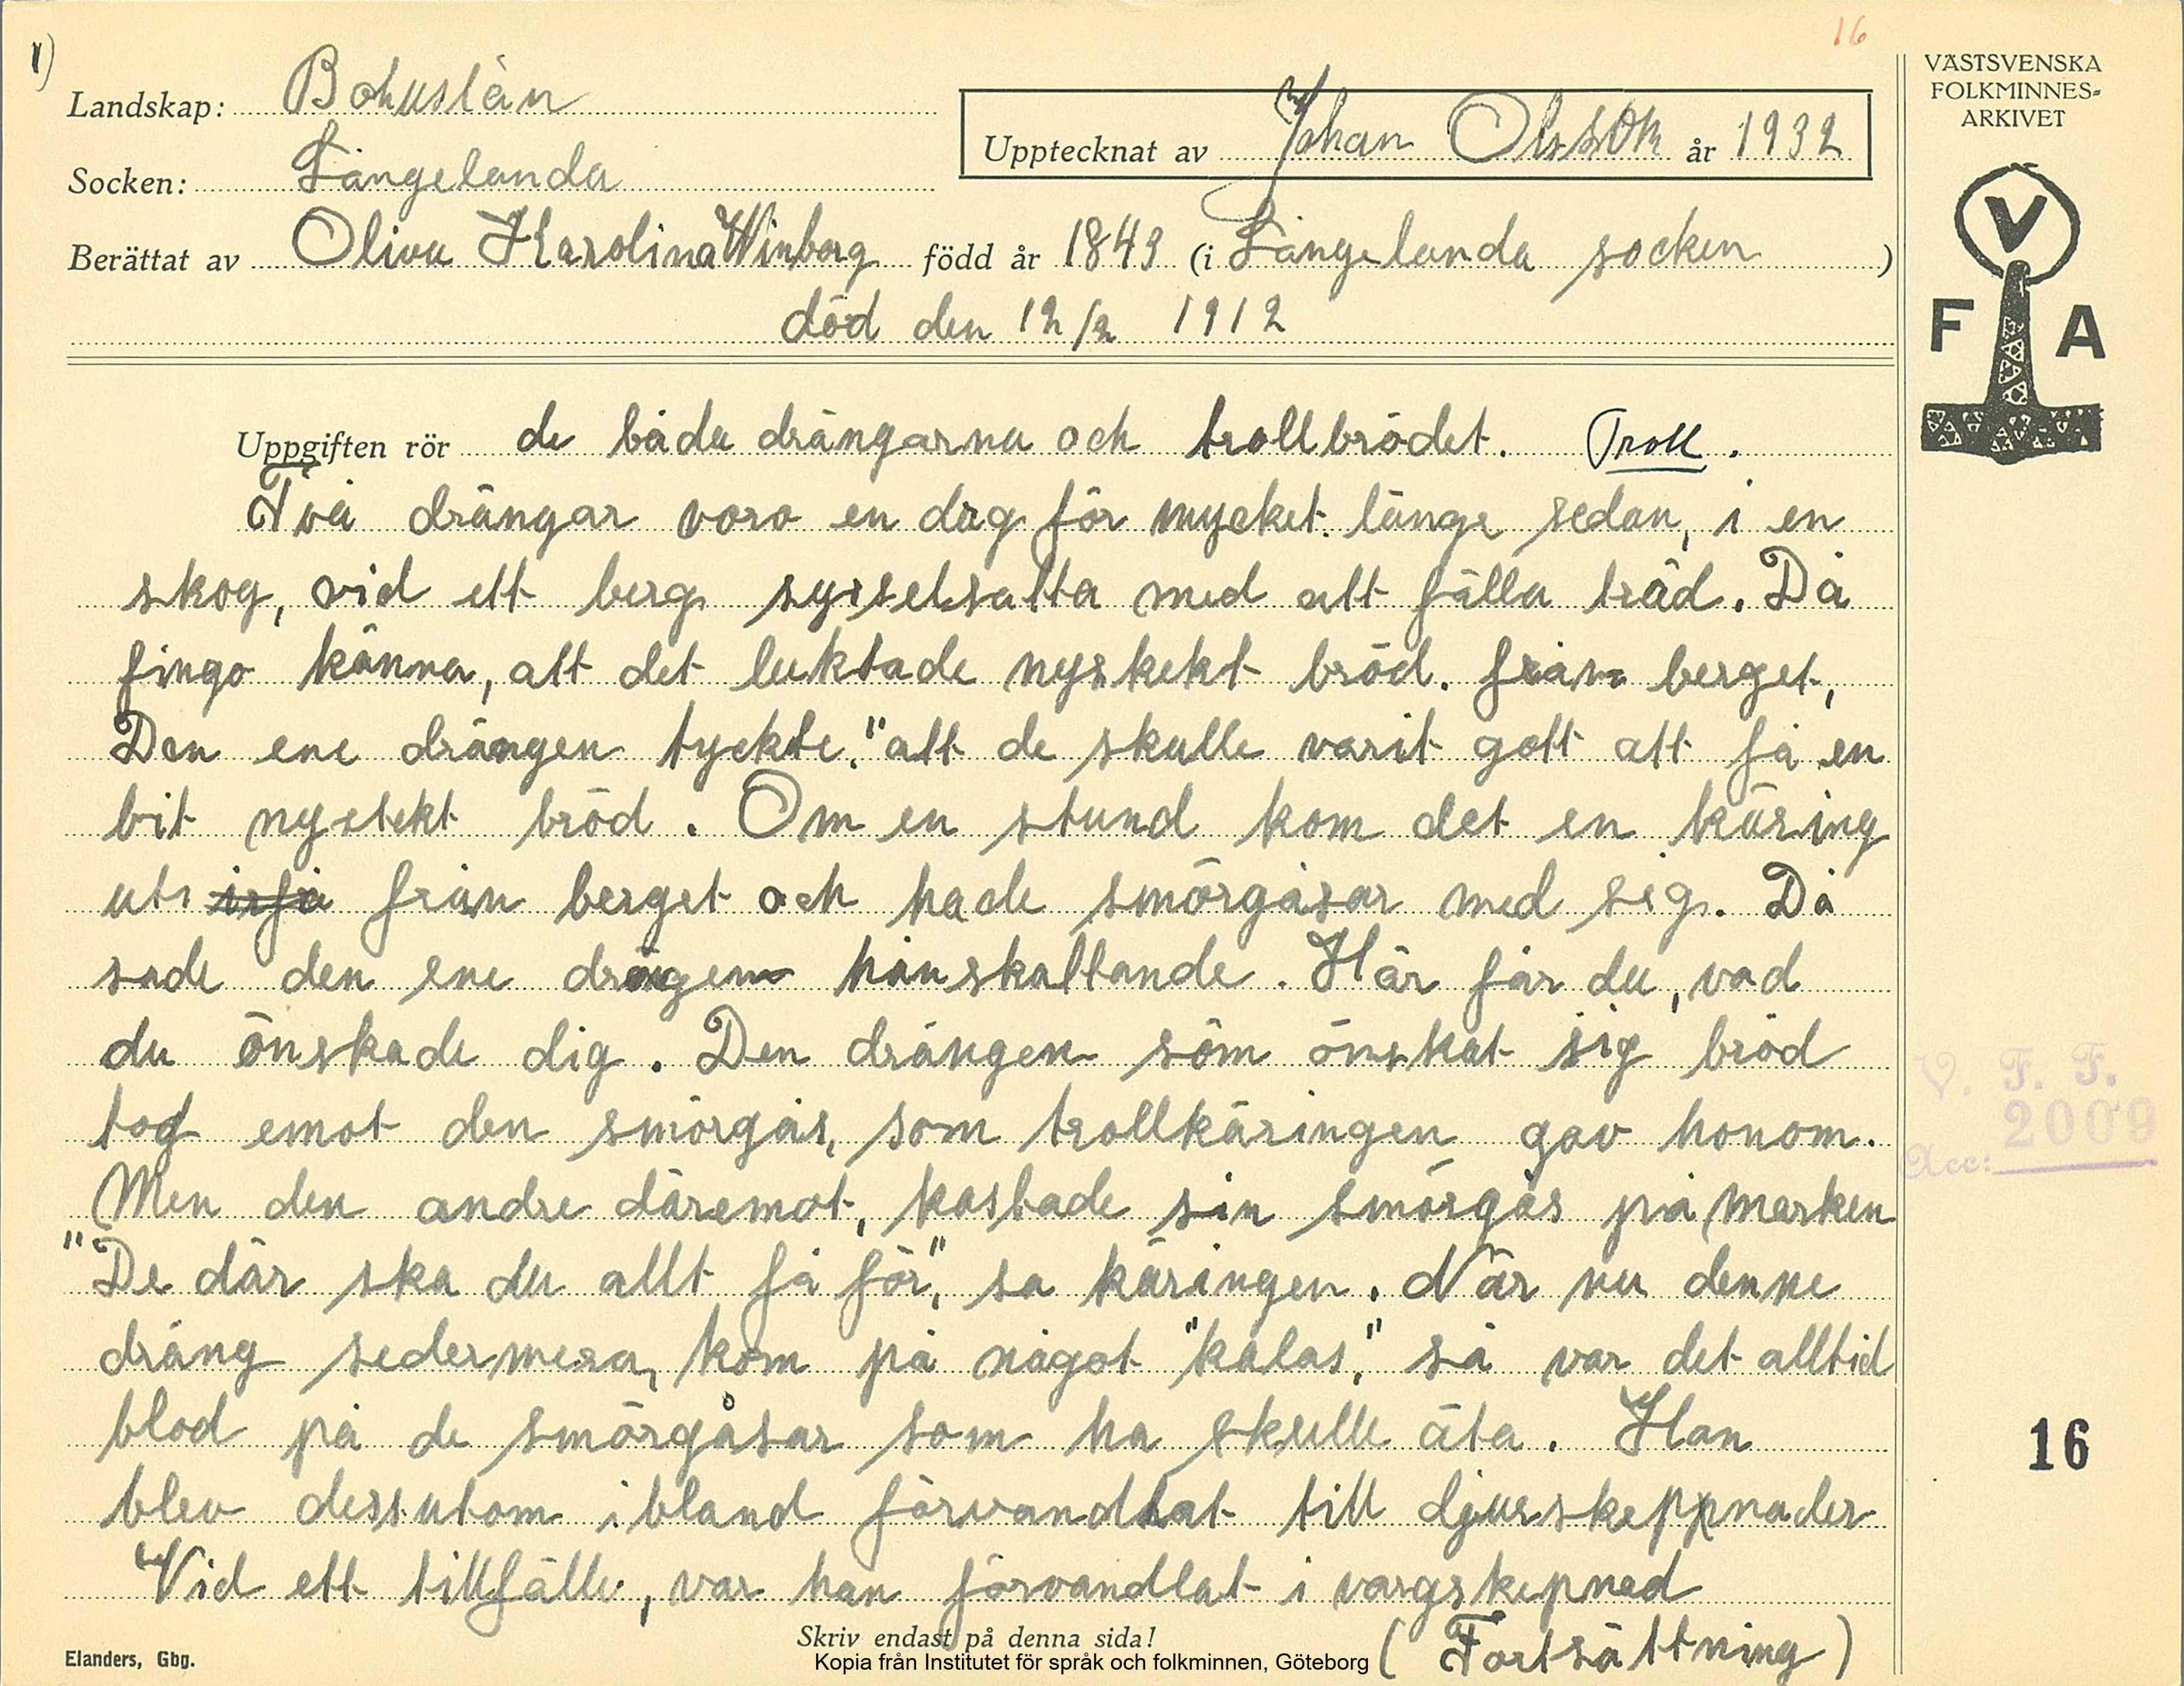 1)
16
Landskap: Bohuslän
Socken: Långelanda
Upptecknat av Johan Olsson år 1932
Berättat av Oliva Karolina Winborg född år 1843 (i Långelanda socken)
död den 12/2 1912
VÄSTSVENSKA
FOLKMINNES-
ARKIVET
V
F A
Uppgiften rör de båda drängarna och trollbrödet. Troll.
Två drängar voro en dag för mycket länge sedan, i en
skog, vid ett berg sysselsatta med att fälla träd. Då
fingo känna, att det luktade nyskekt bröd. från berget,
Den ene drängen tyckte. "att de skulle varit gott att få en
bit nystekt bröd. Om en stund kom det en käring
ut från berget och hade smörgåsar med sig. Då
sade den ene drängen hånskattande. Här får du, vad
du önskade dig. Den drängen som önskat sig bröd
tog emot den smörgås, som trollkäringen gav honom.
Men den andre däremot, kastade sin smörgås på marken
"De där ska du allt få för", sa käringen. När nu denne
dräng sedermera, kom på något "kalas," så var det alltid
blod på de smörgåsar som ha skulle äta. Han
blev dessutom ibland förvandlat till djurskeppnader
Vid ett tillfälle, var han förvandlat i vargskepnad
(Fortsättning)
V. F. F.
Acc: 2009
16
Skriv endast på denna sida!
Elanders, Gbg.
Kopia från Institutet för språk och folkminnen, Göteborg